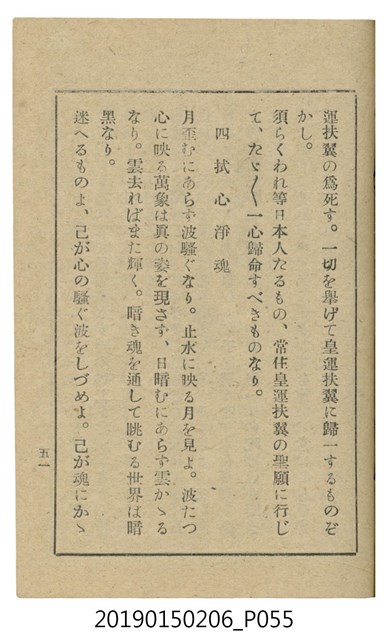 運扶翼の爲死す。一切を擧げて皇運扶翼に歸一するものぞ
かし。
須らくわれ等日本人たるもの、常住皇運扶翼の聖願に行じ
て、たゞ〳〵一心歸命すべきものなり。
四 拭心淨魂
月歪むにあらず波騷ぐなり。止水に映る月を見よ。波たつ
心に映る萬象は眞の姿を現さず、日暗むにあらず雲かゝる
なり。雲去ればまた輝く。暗き魂を通して眺むる世界は暗
黑なり。
迷へるものよ、己が心の騷ぐ波をしづめよ。己が魂にかゝ
五一
20190150206_P055